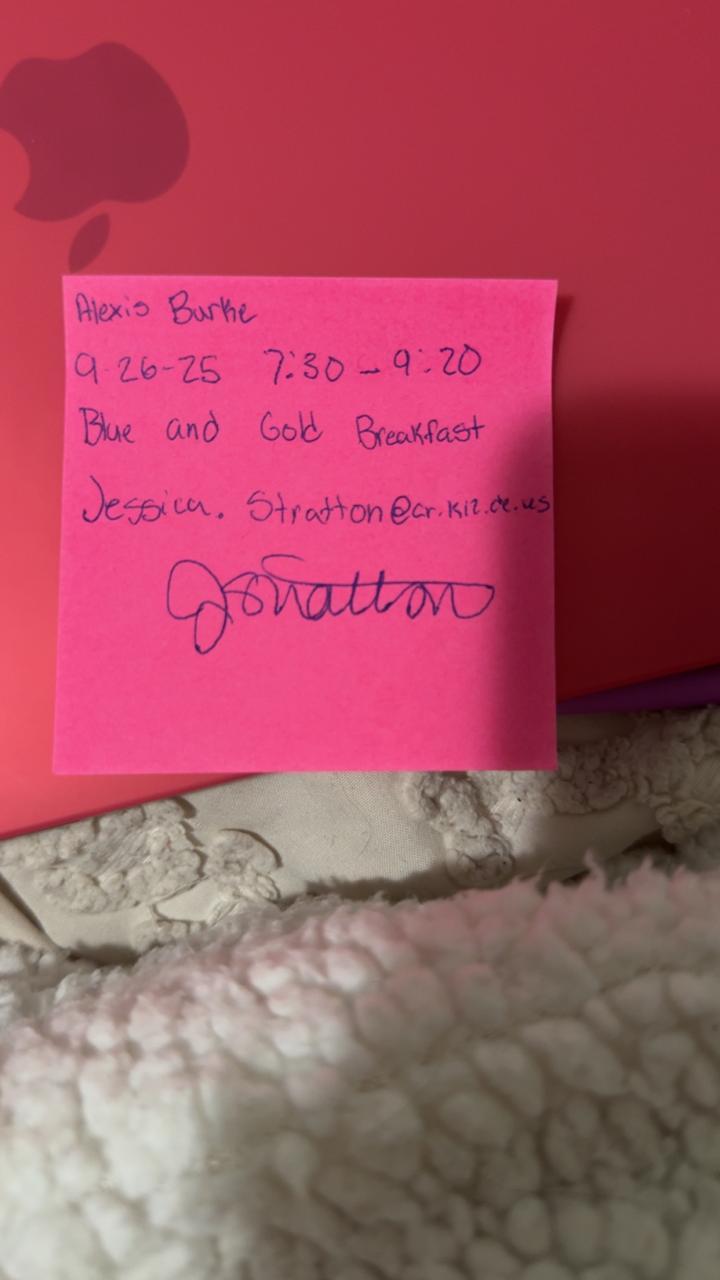 Alexis Burke
9-26-25 7:30 - 9:20
Blue and Gold Breakfast
Jessica.Stratton@cr.k12.de.us
JStratton